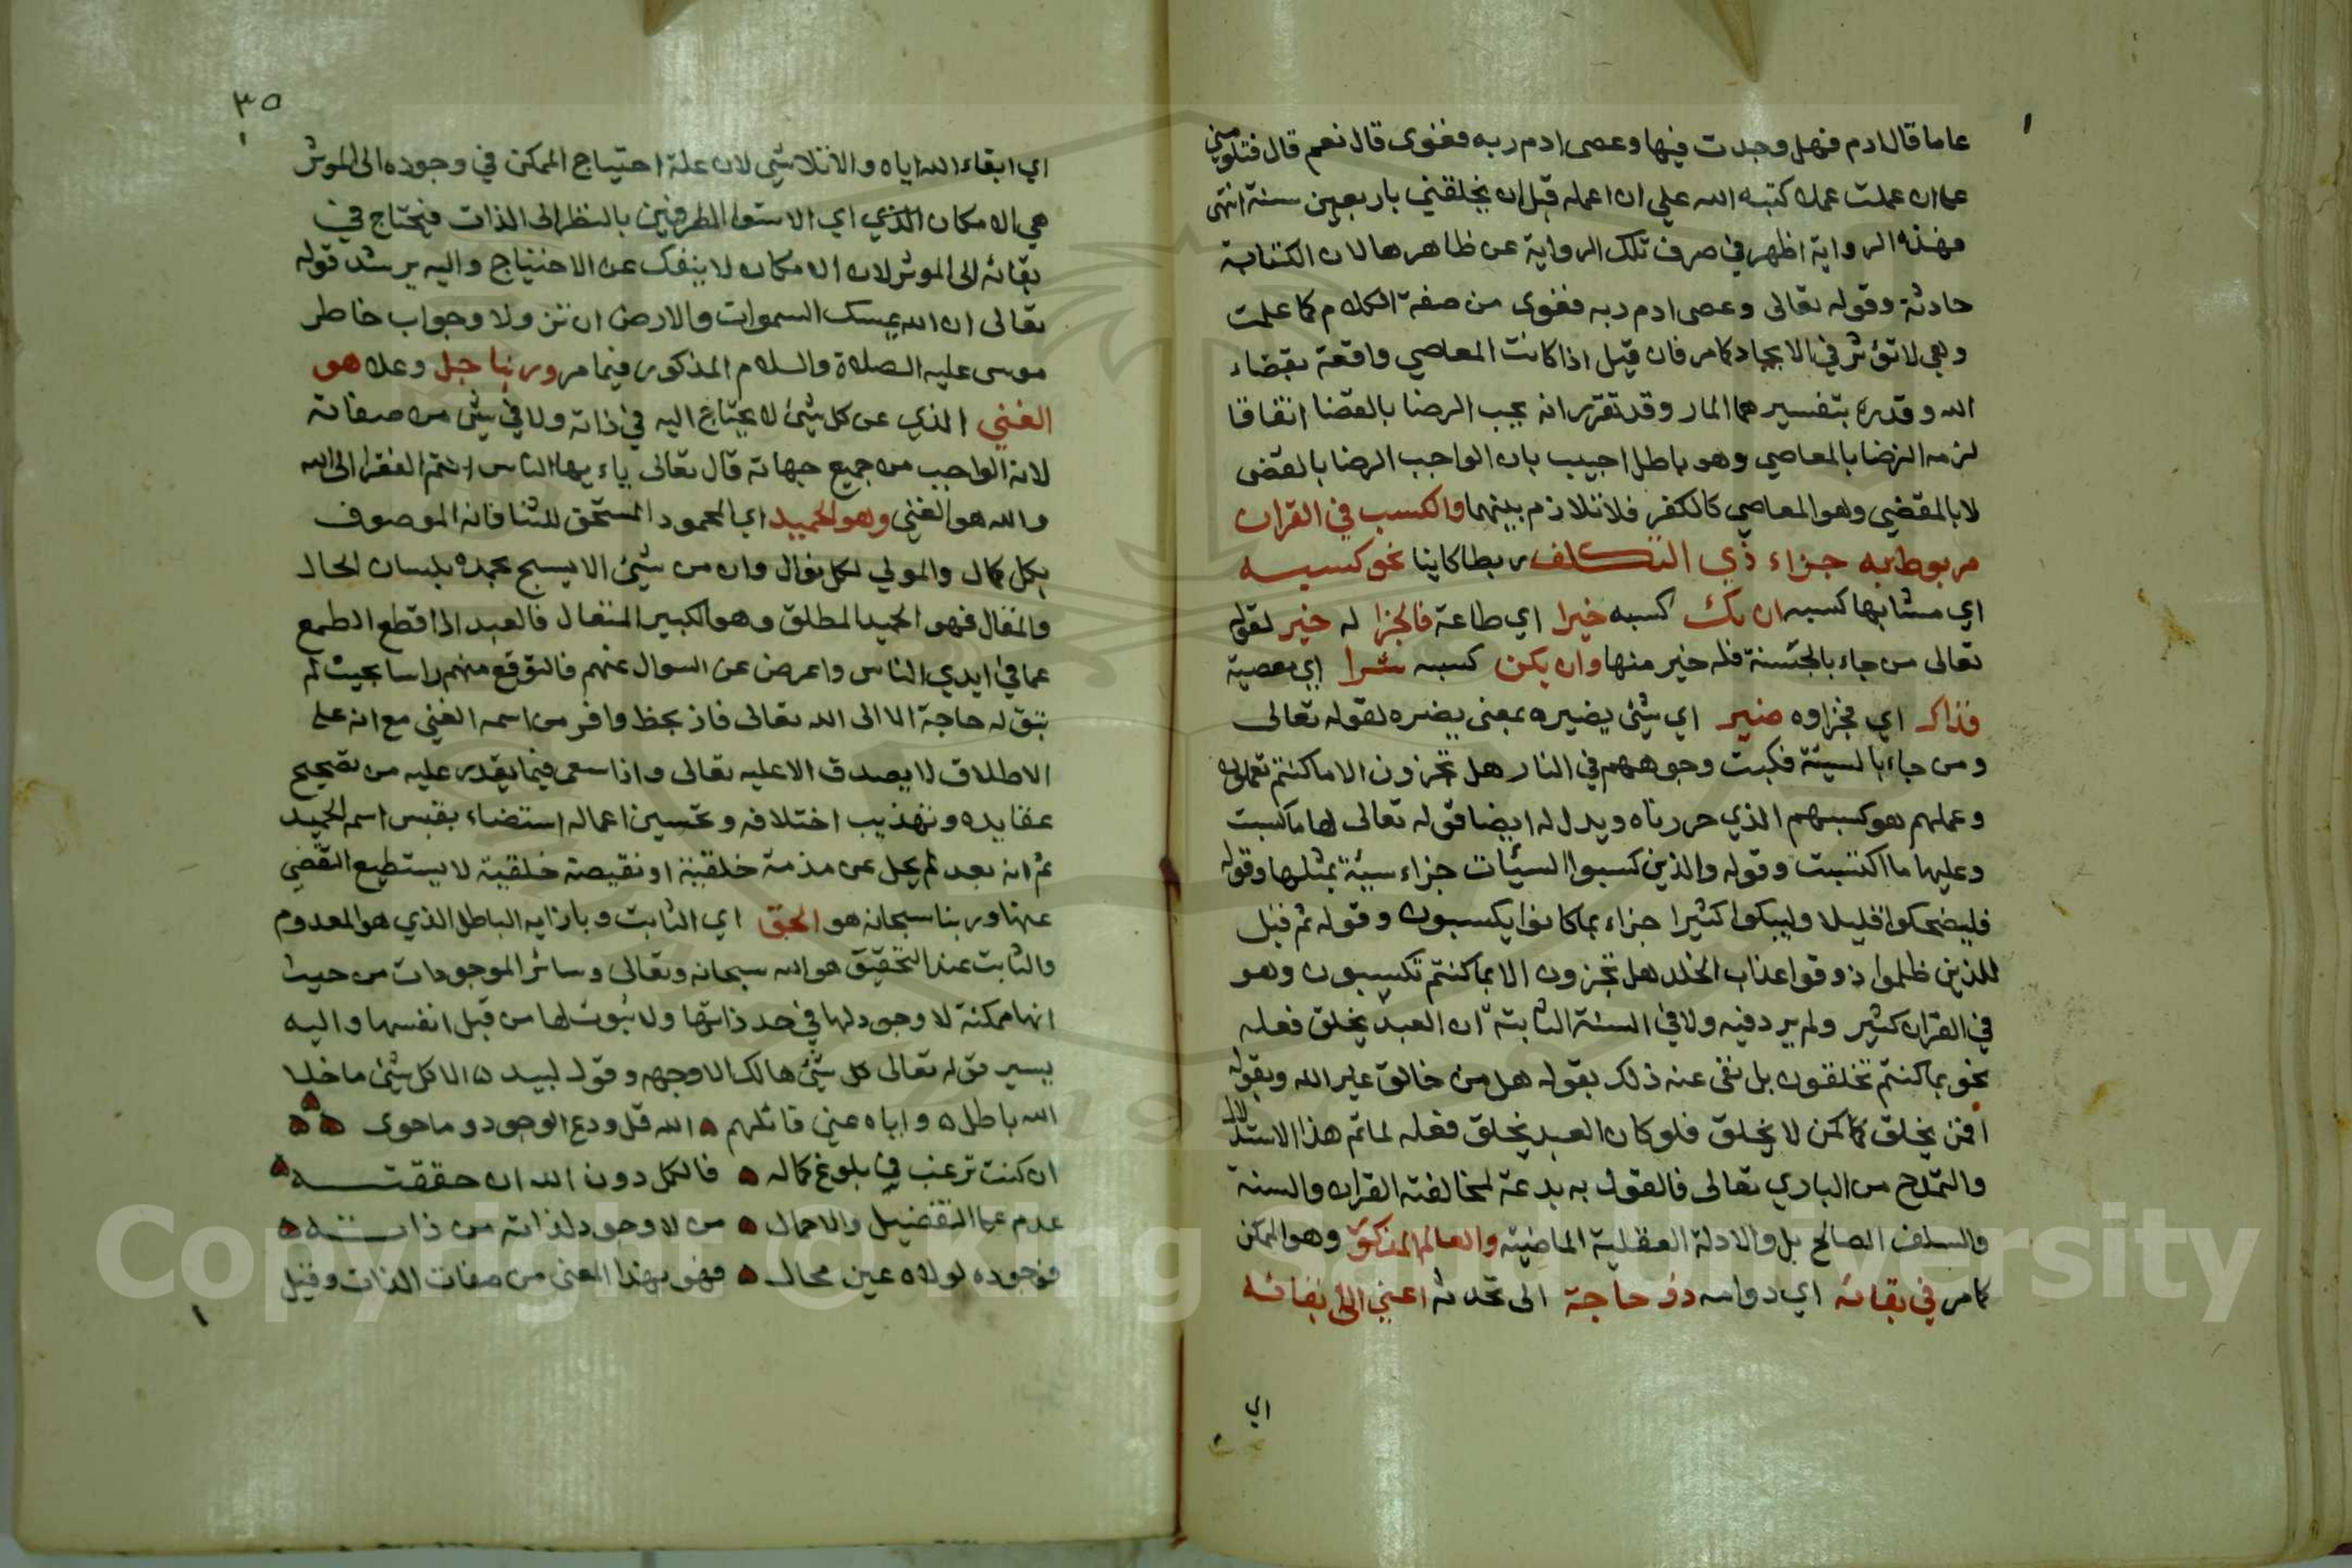 عاما قال ادم فهل وجدت فيها وعصى ادم ربه فغوى قال نعم قال فتلومني
على ان عملت عملا كتبه الله علي ان اعمله قبل ان يخلقني باربعين سنة انتهى
فهذه الرواية اظهر في صرف تلك الرواية عن ظاهرها لان الكتابة
حادثة وقوله تعالى وعصى ادم ربه فغوى من صفة الكلام كما علمت
وهي لا تؤثر في الايجاد كما مر فان قيل اذا كانت المعاصي واقعة بقضاء
الله وقدره بتفسيرهما المار وقد تقرر انه يجب الرضا بالقضا اتفاقا
لزمه الرضا بالمعاصي وهو باطل اجيب بان الواجب الرضا بالقضى
لا بالمقضي وهو المعاصي كالكفر فلا تلازم بينهما والكسب في القران
مربوط به جزاء ذي التكلف ربطا كاينا نحو كسبه
اي مشابها كسبه ان يك كسبه خيرا اي طاعة فالجزا له خير لقوله
تعالى من جاء بالحسنة فله خير منها وان يكن كسبه شرا اي معصية
فذاك اي فجزاوه ضير اي شئ يضيره بمعنى يضره لقوله تعالى
ومن جاء بالسيئة فكبت وجوههم في النار هل تجزون الا ما كنتم تعملون
وعملهم هو كسبهم الذي حررناه ويدل له ايضا قوله تعالى لها ما كسبت
وعليها ما اكتسبت وقوله والذين كسبوا السيئات جزاء سيئة بمثلها وقوله
فليضحكوا قليلا وليبكوا كثيرا جزاء بما كانوا يكسبون وقوله ثم قيل
للذين ظلموا ذوقوا عذاب الخلد هل تجزون الا بما كنتم تكسبون وهو
في القران كثير ولم يرد فيه ولا في السنة الثابتة ان العبد يخلق فعله
نحو بما كنتم تخلقون بل نفى عنه ذلك بقوله هل من خالق غير الله وبقوله
افمن يخلق كمن لا يخلق فلو كان العبد يخلق فعله لما تم هذا الاستدلال
والتمدح من الباري تعالى فالقول به بدعة لمخالفته القران والسنة
والسلف الصالح بل والادلة العقلية الماضية والعالم المذكور وهو الممكن
كما مر في بقائه اي دوامه ذو حاجة الى محدثه اعني الى بقائه
اي
٣٥
اي ابقاء الله اياه والا لتلاشي لان علة احتياج الممكن في وجوده الى الموثر
هي الامكان الذي اي الاستوا الطرفين بالنظر الى الذات فيحتاج في
بقائه الى الموثر لان الامكان لا ينفك عن الاحتياج واليه يرشد قوله
تعالى ان الله يمسك السموات والارض ان تزولا وجواب خاطر
موسى عليه الصلاة والسلام المذكور فيما مر وربنا جل وعلا هو
الغني الذي عن كل شئ لا يحتاج اليه في ذاته ولا في شئ من صفاته
لانه الواجب من جميع جهاته قال تعالى ياءيها الناس انتم الفقرا الى الله
والله هو الغني وهو الحميد اي المحمود المستحق للثنا فانه الموصوف
بكل كمال والمولي لكل نوال وان من شئ الا يسبح بحمده بلسان الحال
والمقال فهو الحميد المطلق وهو الكبير المتعال فالعبد اذا قطع الطمع
عما في ايدي الناس واعرض عن السوال عنهم فالتوقع منهم راسا بحيث لم
تبق له حاجة الا الى الله تعالى فاز بحظ وافر من اسمه الغني مع انه على
الاطلاق لا يصدق الا عليه تعالى واذا سعى فيما يقدر عليه من تصحيح
عقايده وتهذيب اخلاقه وتحسين اعماله استضاء بقبس اسم الحميد
ثم انه بعد لم يخل عن مذمة خلقية او نقيصة خلقية لا يستطيع التقضي
عنها وربنا سبحانه هو الحق اي الثابت وبازايه الباطل الذي هو المعدوم
والثابت عند التحقيق هو الله سبحانه وتعالى وسائر الموجودات من حيث
انها ممكنة لا وجود لها في حد ذاتها ولا ثبوت لها من قبل انفسها واليه
يسير قوله تعالى كل شئ هالك الا وجهه وقول لبيد ه الا كل شئ ما خلا
الله باطل ه واياه عنى قائلهم ه الله قل ودع الوجود وما حوى ه ه ه
ان كنت ترغب في بلوغ كماله ه فالكل دون الله ان حققته ه
عدم على التفضيل والاجمال ه من لا وجود لذاته من ذاته ه
فوجوده لولاه عين محال ه فهو بهذا المعنى من صفات الذات وقيل
Copyright © King Saud University